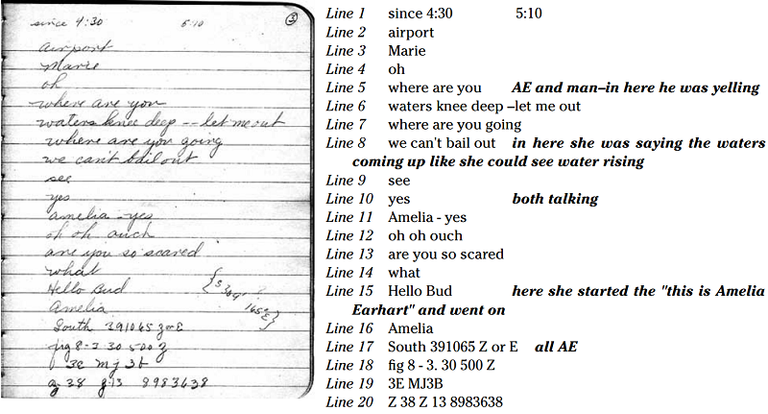 since 4:30 5:10 3
airport
Marie
oh
where are you
waters knee deep -- let me out
where are you going
we can't bail out
see
yes
amelia - yes
oh oh ouch
are you so scared
what
Hello Bud
Amelia
South 391065 Z or E
fig 8-3 30 500 Z
3E MJ 3B
Z 38 Z 13 8983638
Line 1 since 4:30 5:10
Line 2 airport
Line 3 Marie
Line 4 oh
Line 5 where are you AE and man–in here he was yelling
Line 6 waters knee deep –let me out
Line 7 where are you going
Line 8 we can't bail out in here she was saying the waters
coming up like she could see water rising
Line 9 see
Line 10 yes both talking
Line 11 Amelia - yes
Line 12 oh oh ouch
Line 13 are you so scared
Line 14 what
Line 15 Hello Bud here she started the "this is Amelia
Earhart" and went on
Line 16 Amelia
Line 17 South 391065 Z or E all AE
Line 18 fig 8 - 3. 30 500 Z
Line 19 3E MJ3B
Line 20 Z 38 Z 13 8983638